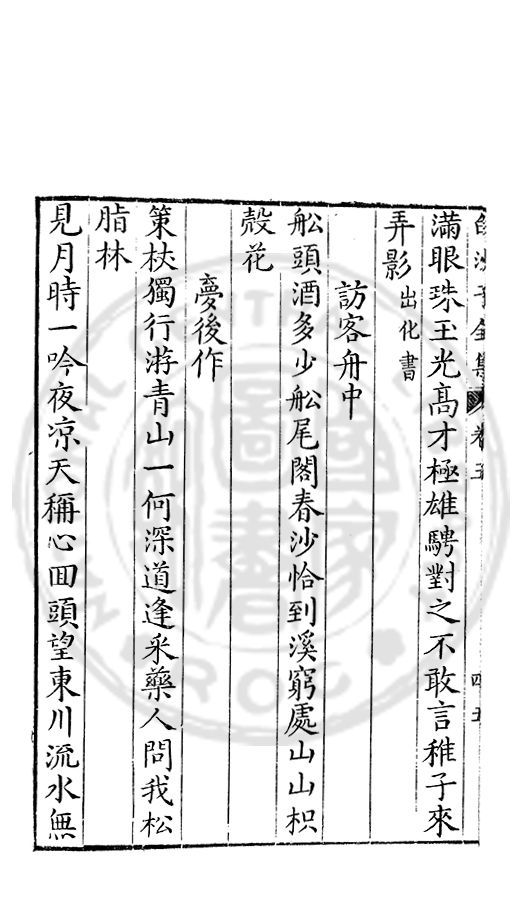 全集卷五 四五
滿眼珠玉光髙才極雄騁對之不敢言稚子來
弄影出化書
訪客舟中
舩頭酒多少舩尾閣春沙恰到溪窮處山山枳
殼花
夢後作
策杖獨行游青山一何深道逢采藥人問我松
脂林
見月時一吟夜凉天稱心囬頭望東川流水無